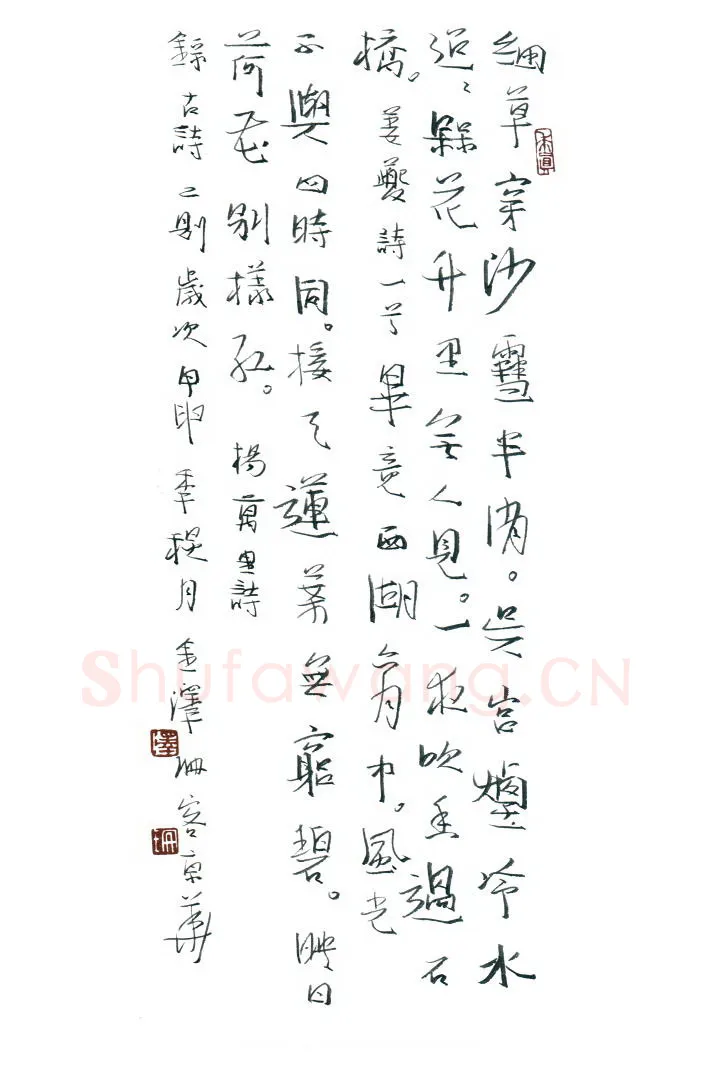 細草穿沙雪半消。吳宮煙冷水
迢迢槑花竹里無人見。一夜吹香過石
橋。姜夔詩一首畢竟西湖六月中。風光
不與四時同。接天蓮葉無窮碧。映日
荷花別樣紅。楊萬里詩
錄古詩二則歲次甲申季月金澤珊客京華
澤
珊
Shufawang.CN